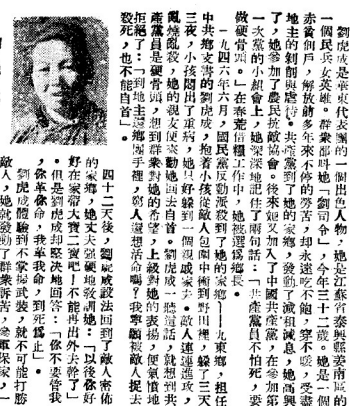 劉虎成是華東代表團的一個出色人物，她是江蘇省泰興縣姜南區的
一個民兵女英雄。群衆都叫她「劉司令」，今年三十二歲。她是一個
赤貧佃戶，解放前多年來不停的勞苦，却永遠吃不飽，穿不暖，受盡
地主的剝削與虐待。共產黨到了她的家鄉，發動了減租減息，她高興
了，她參加了農民抗敵協會。後來她又加入了中國共產黨，在參加第
一次黨的小組會上，她深深地記住了兩句話：「共產黨員不怕死，要
做硬骨頭。」在春荒借糧工作中，她被選爲鄉長。
一九四六年六月，國民黨反動派殺到了她的家鄉——九東鄉，担任
中共鄉支書的劉虎成，抱着小孩從敵人包圍中衝到野田裡，躱了三天
三夜，小孩悶出了重病，她只好躱到一個親戚家去。敵人連連進攻，
亂燒亂殺，她的親友便來勸她回去自首。劉虎成一聽這話，就想到共
產黨員是硬骨頭，想到群衆對她的希望，上級對她的表揚，便氣憤地
拒絕了：「到地主還鄉團手裡，窮人還想活命嗎？我寧願被敵人捉去
殺死，也不能自首」。
四十二天後，劉虎成設法回到了敵人密佈
的家鄉，她丈夫强硬地教訓她：「以後你好
好在家帶大二寶吧！不能再出外去幹了」
。但是劉虎成却堅决地回答：「你不要管我
，你革你命，我革我命，到死爲止」。
劉虎成體驗到不掌握武裝，就不可能打勝
敵人，她就發動了群衆訴苦，參軍保家，一